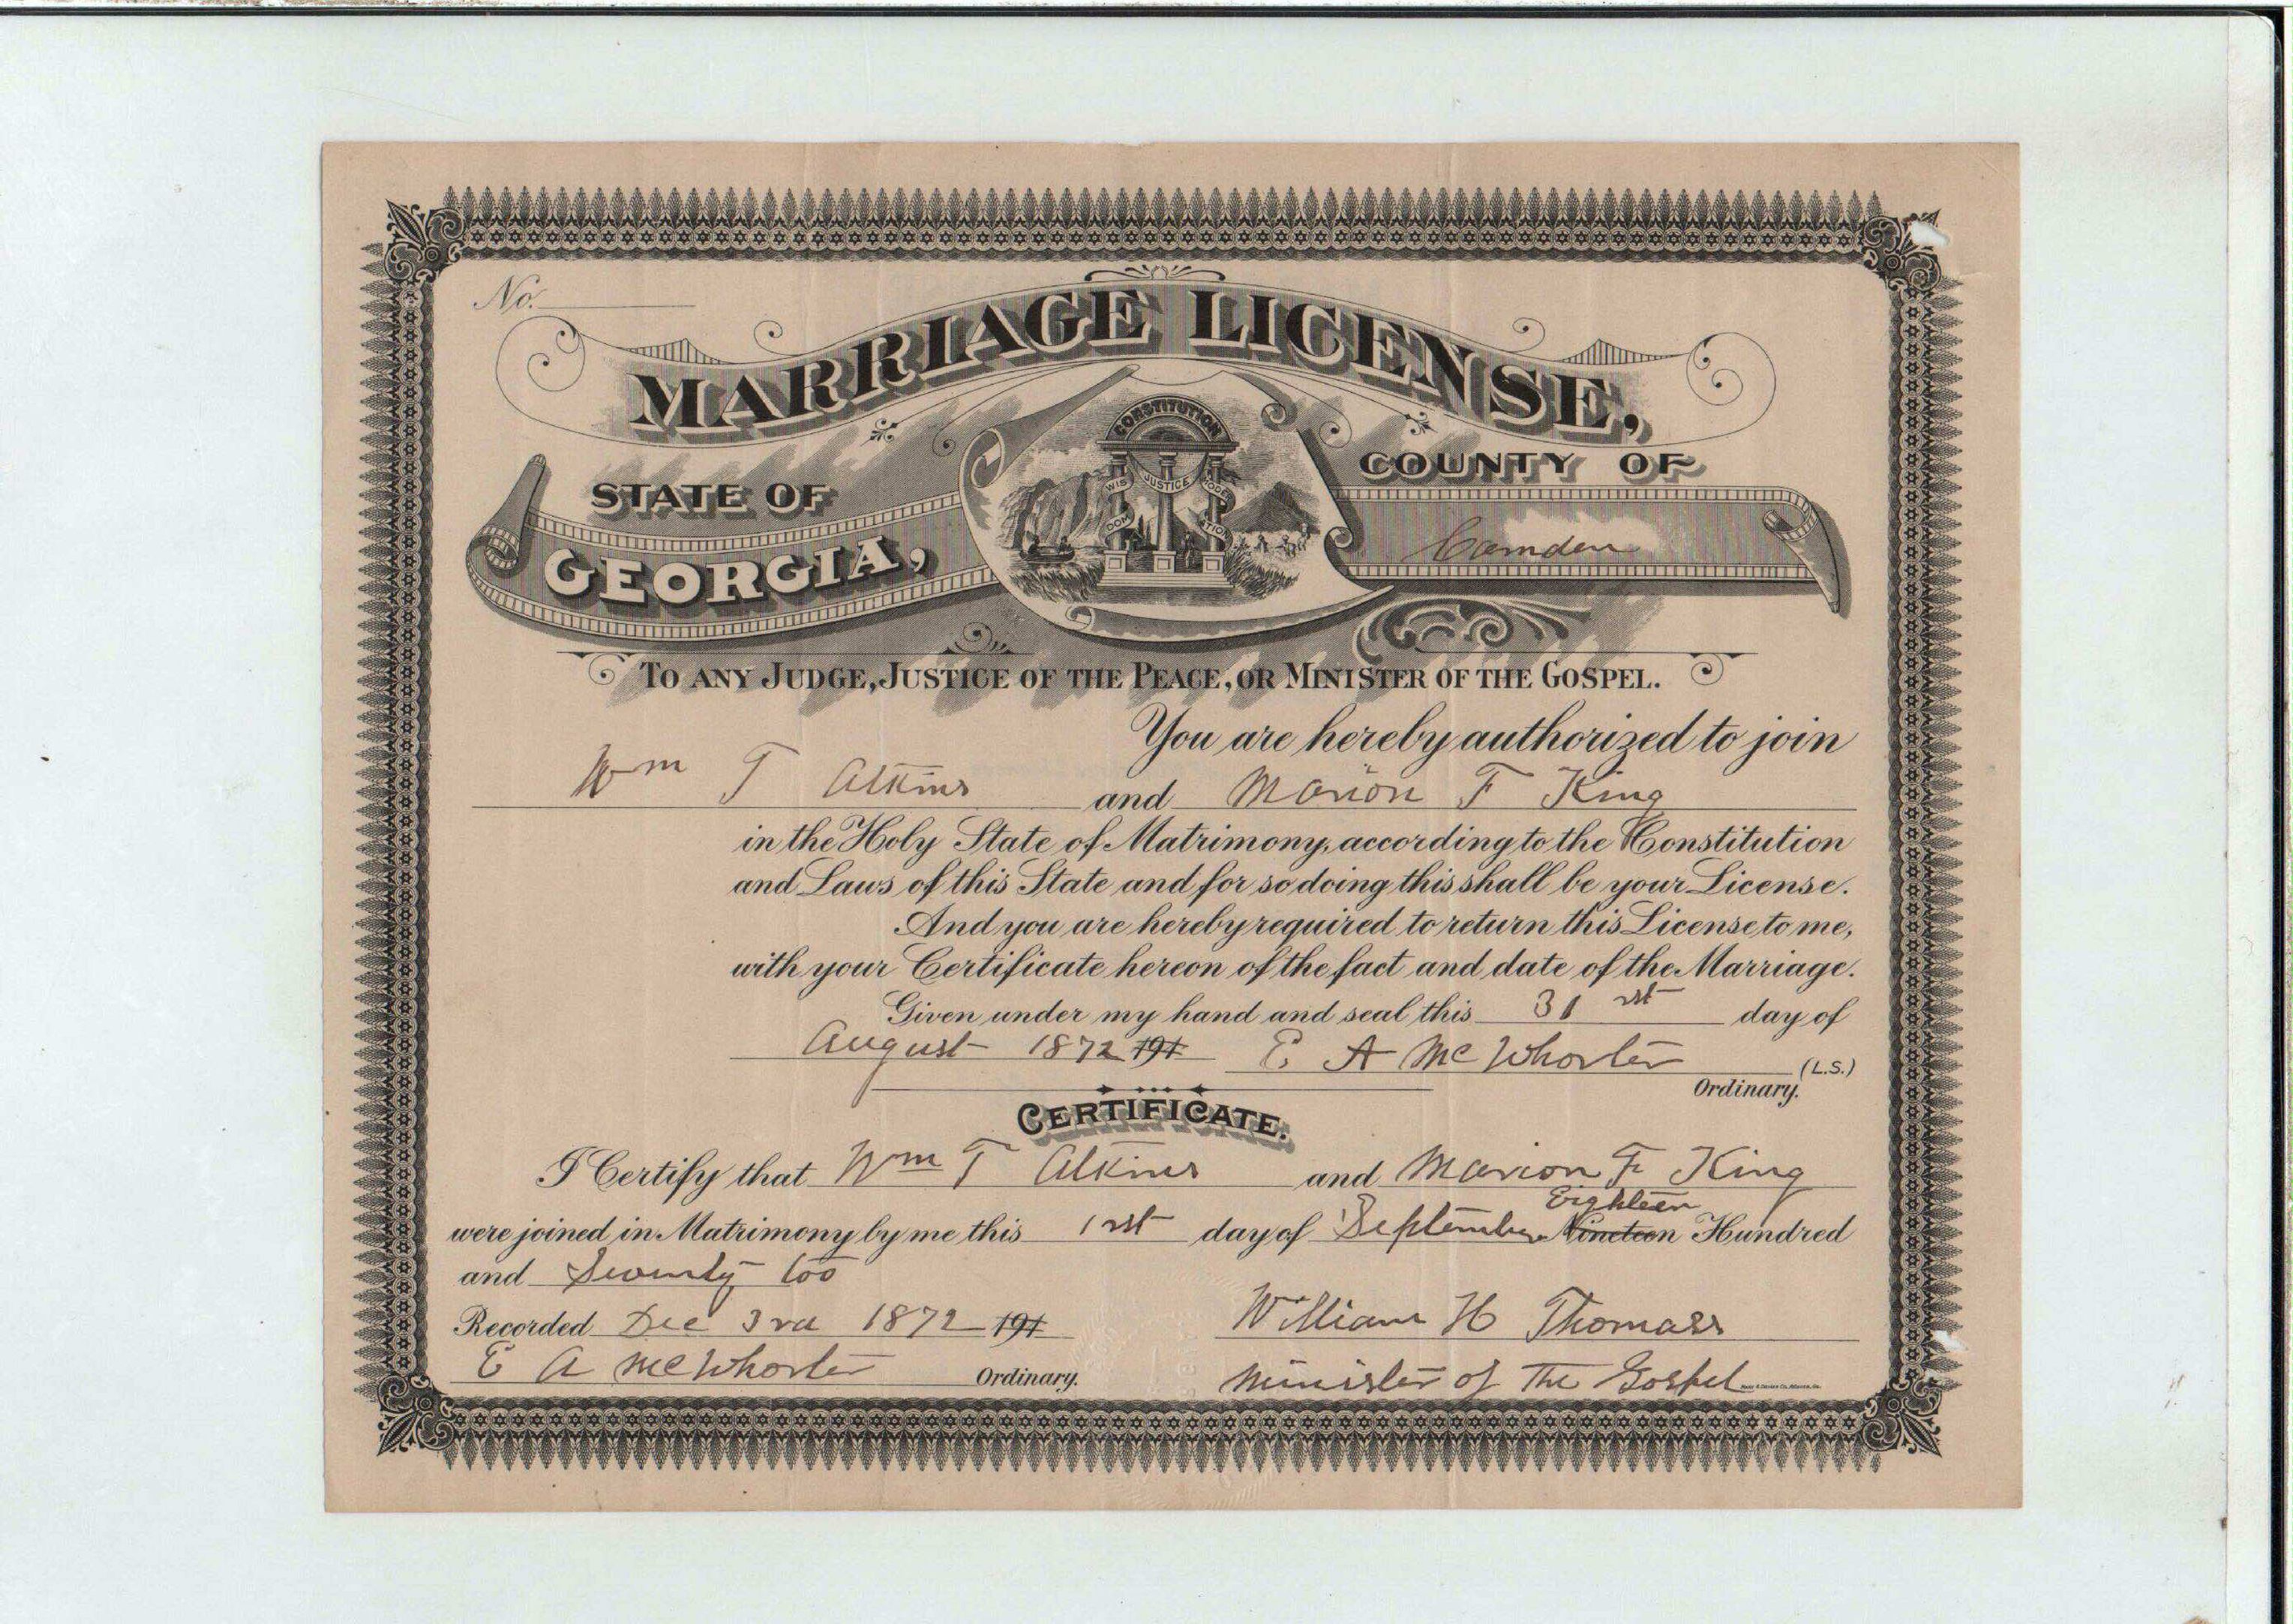 No.
MARRIAGE LICENSE,
STATE OF
GEORGIA,
CONSTITUTION
WIS DOM JUSTICE MODER ATION
COUNTY OF
Camden
TO ANY JUDGE, JUSTICE OF THE PEACE, OR MINISTER OF THE GOSPEL.
You are hereby authorized to join
Wm T Atkins and Marion F King
in the Holy State of Matrimony, according to the Constitution
and Laws of this State and for so doing this shall be your License.
And you are hereby required to return this License to me,
with your Certificate hereon of the fact and date of the Marriage.
Given under my hand and seal this 31 rst day of
August 1872 191 E. A McWhorter (L.S.)
Ordinary.
CERTIFICATE.
I Certify that Wm T Atkins and Marion F King
Eighteen
were joined in Matrimony by me this 1 rst day of September Nineteen Hundred
and Seventy too
Recorded Dec 3rd 1872 191 William H Thomass
E A McWhorter Ordinary. Minister of The Gospel